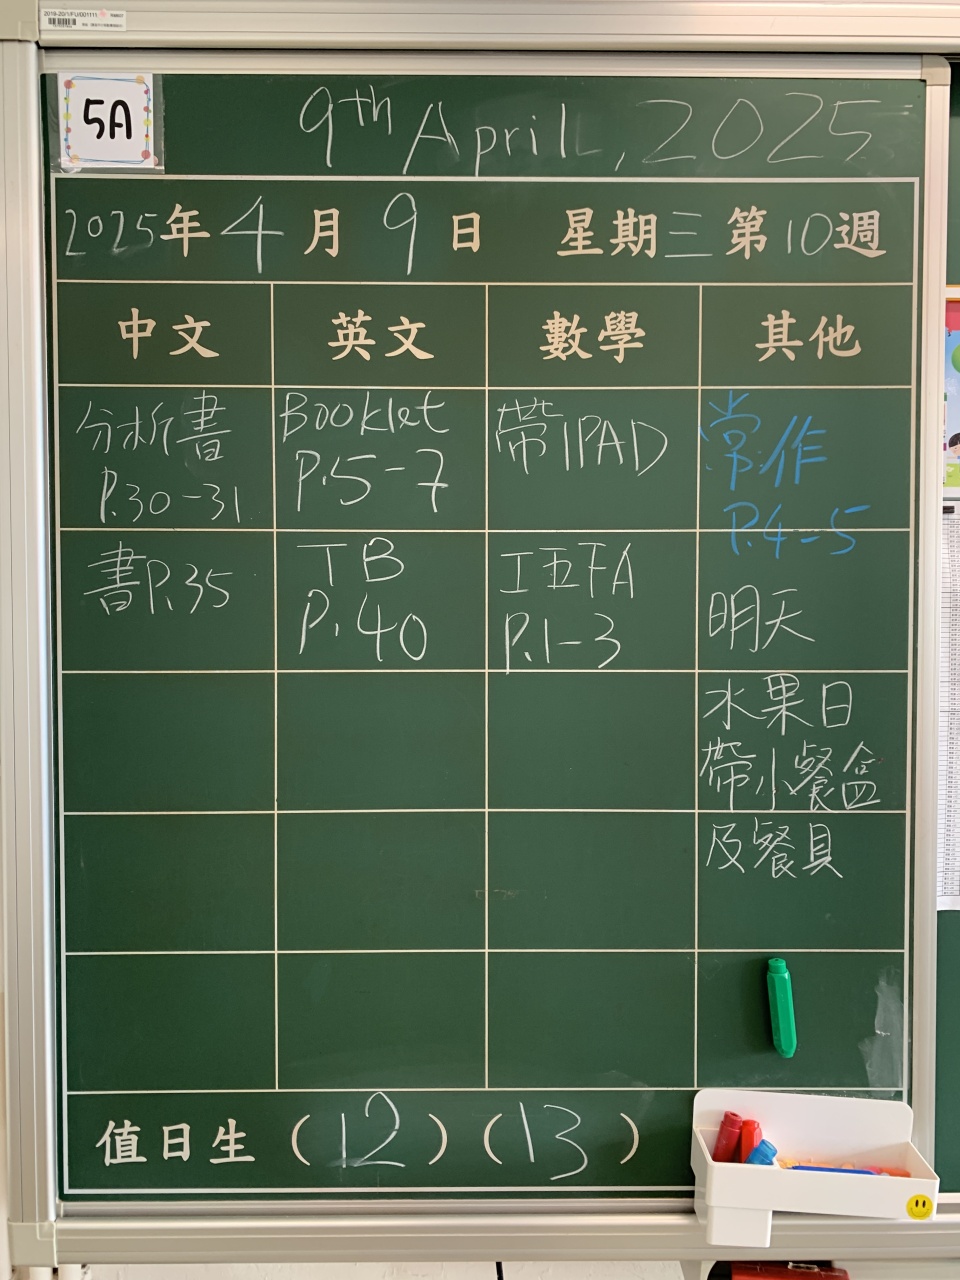 2019-20/1/FU/001111
5A
9th April, 2025
2025年4月9日 星期三第10週
中文 英文 數學 其他
分析書
P.30-31
Booklet
P.5-7
帶IPAD
常.作
P.4-5
書P.35
TB
P.40
工五FA
P.1-3
明天
水果日
帶小餐盒
及餐具
值日生 (12) (13)